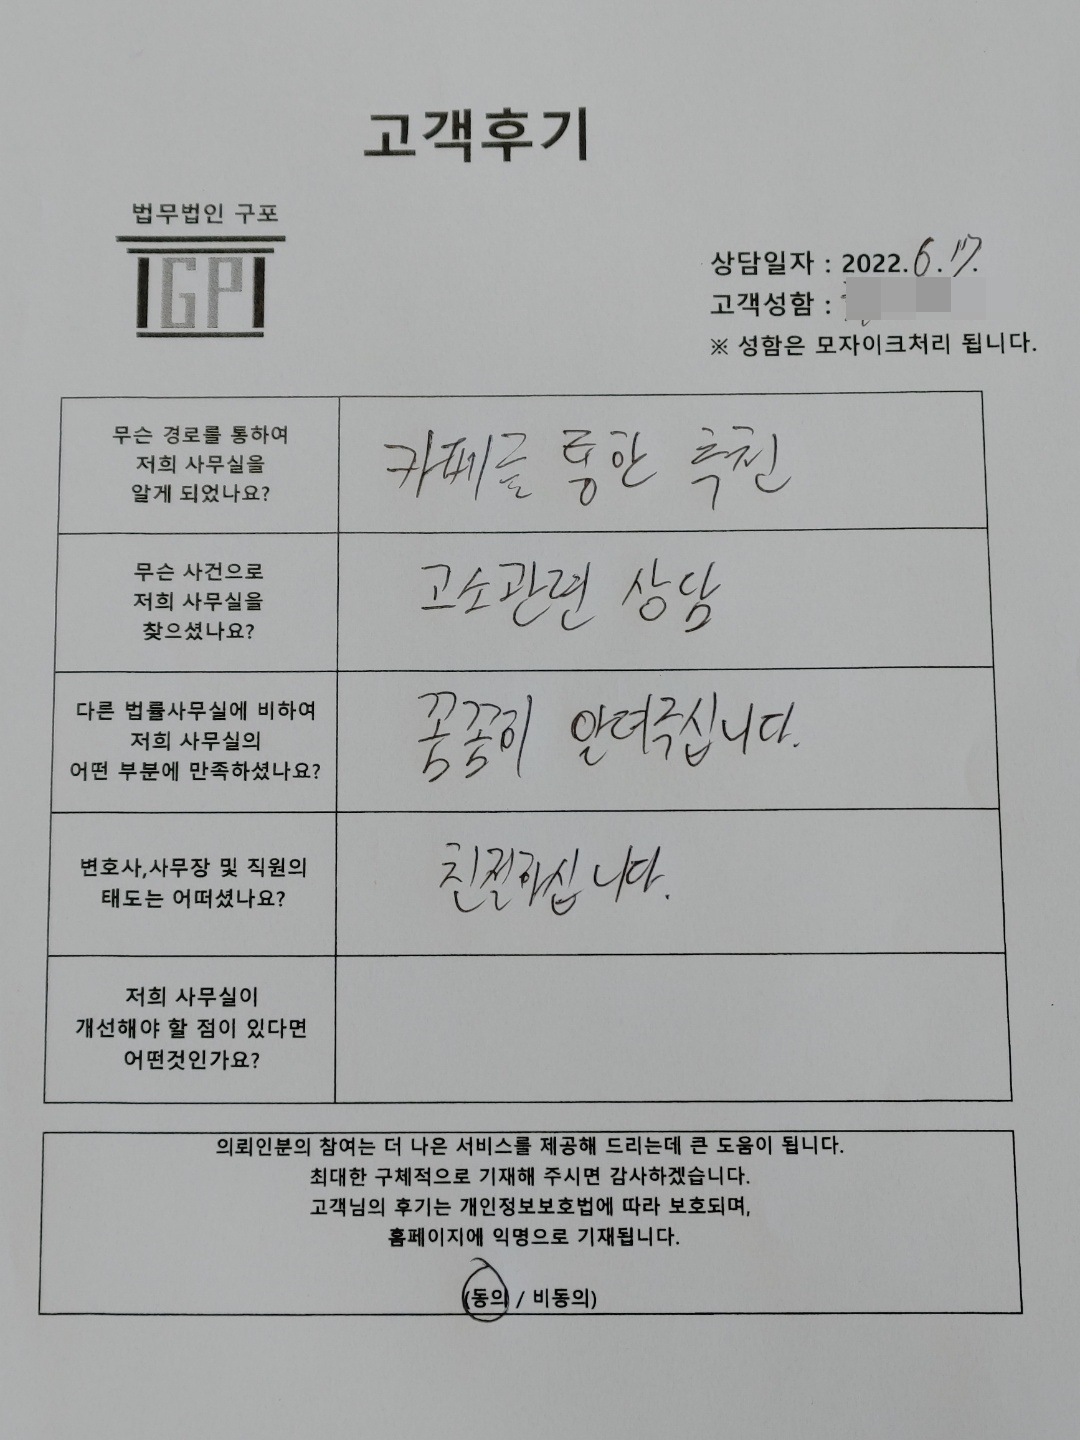 고객후기
법무법인 구포
GP
상담일자 : 2022.6.17.
고객성함 :
※ 성함은 모자이크처리 됩니다.
무슨 경로를 통하여
저희 사무실을
알게 되었나요?
카페글 통한 추천
무슨 사건으로
저희 사무실을
찾으셨나요?
고소관련 상담
다른 법률사무실에 비하여
저희 사무실의
어떤 부분에 만족하셨나요?
꼼꼼히 알려주십니다.
변호사,사무장 및 직원의
태도는 어떠셨나요?
친절하십니다.
저희 사무실이
개선해야 할 점이 있다면
어떤것인가요?
의뢰인분의 참여는 더 나은 서비스를 제공해 드리는데 큰 도움이 됩니다.
최대한 구체적으로 기재해 주시면 감사하겠습니다.
고객님의 후기는 개인정보보호법에 따라 보호되며,
홈페이지에 익명으로 기재됩니다.
(동의 / 비동의)